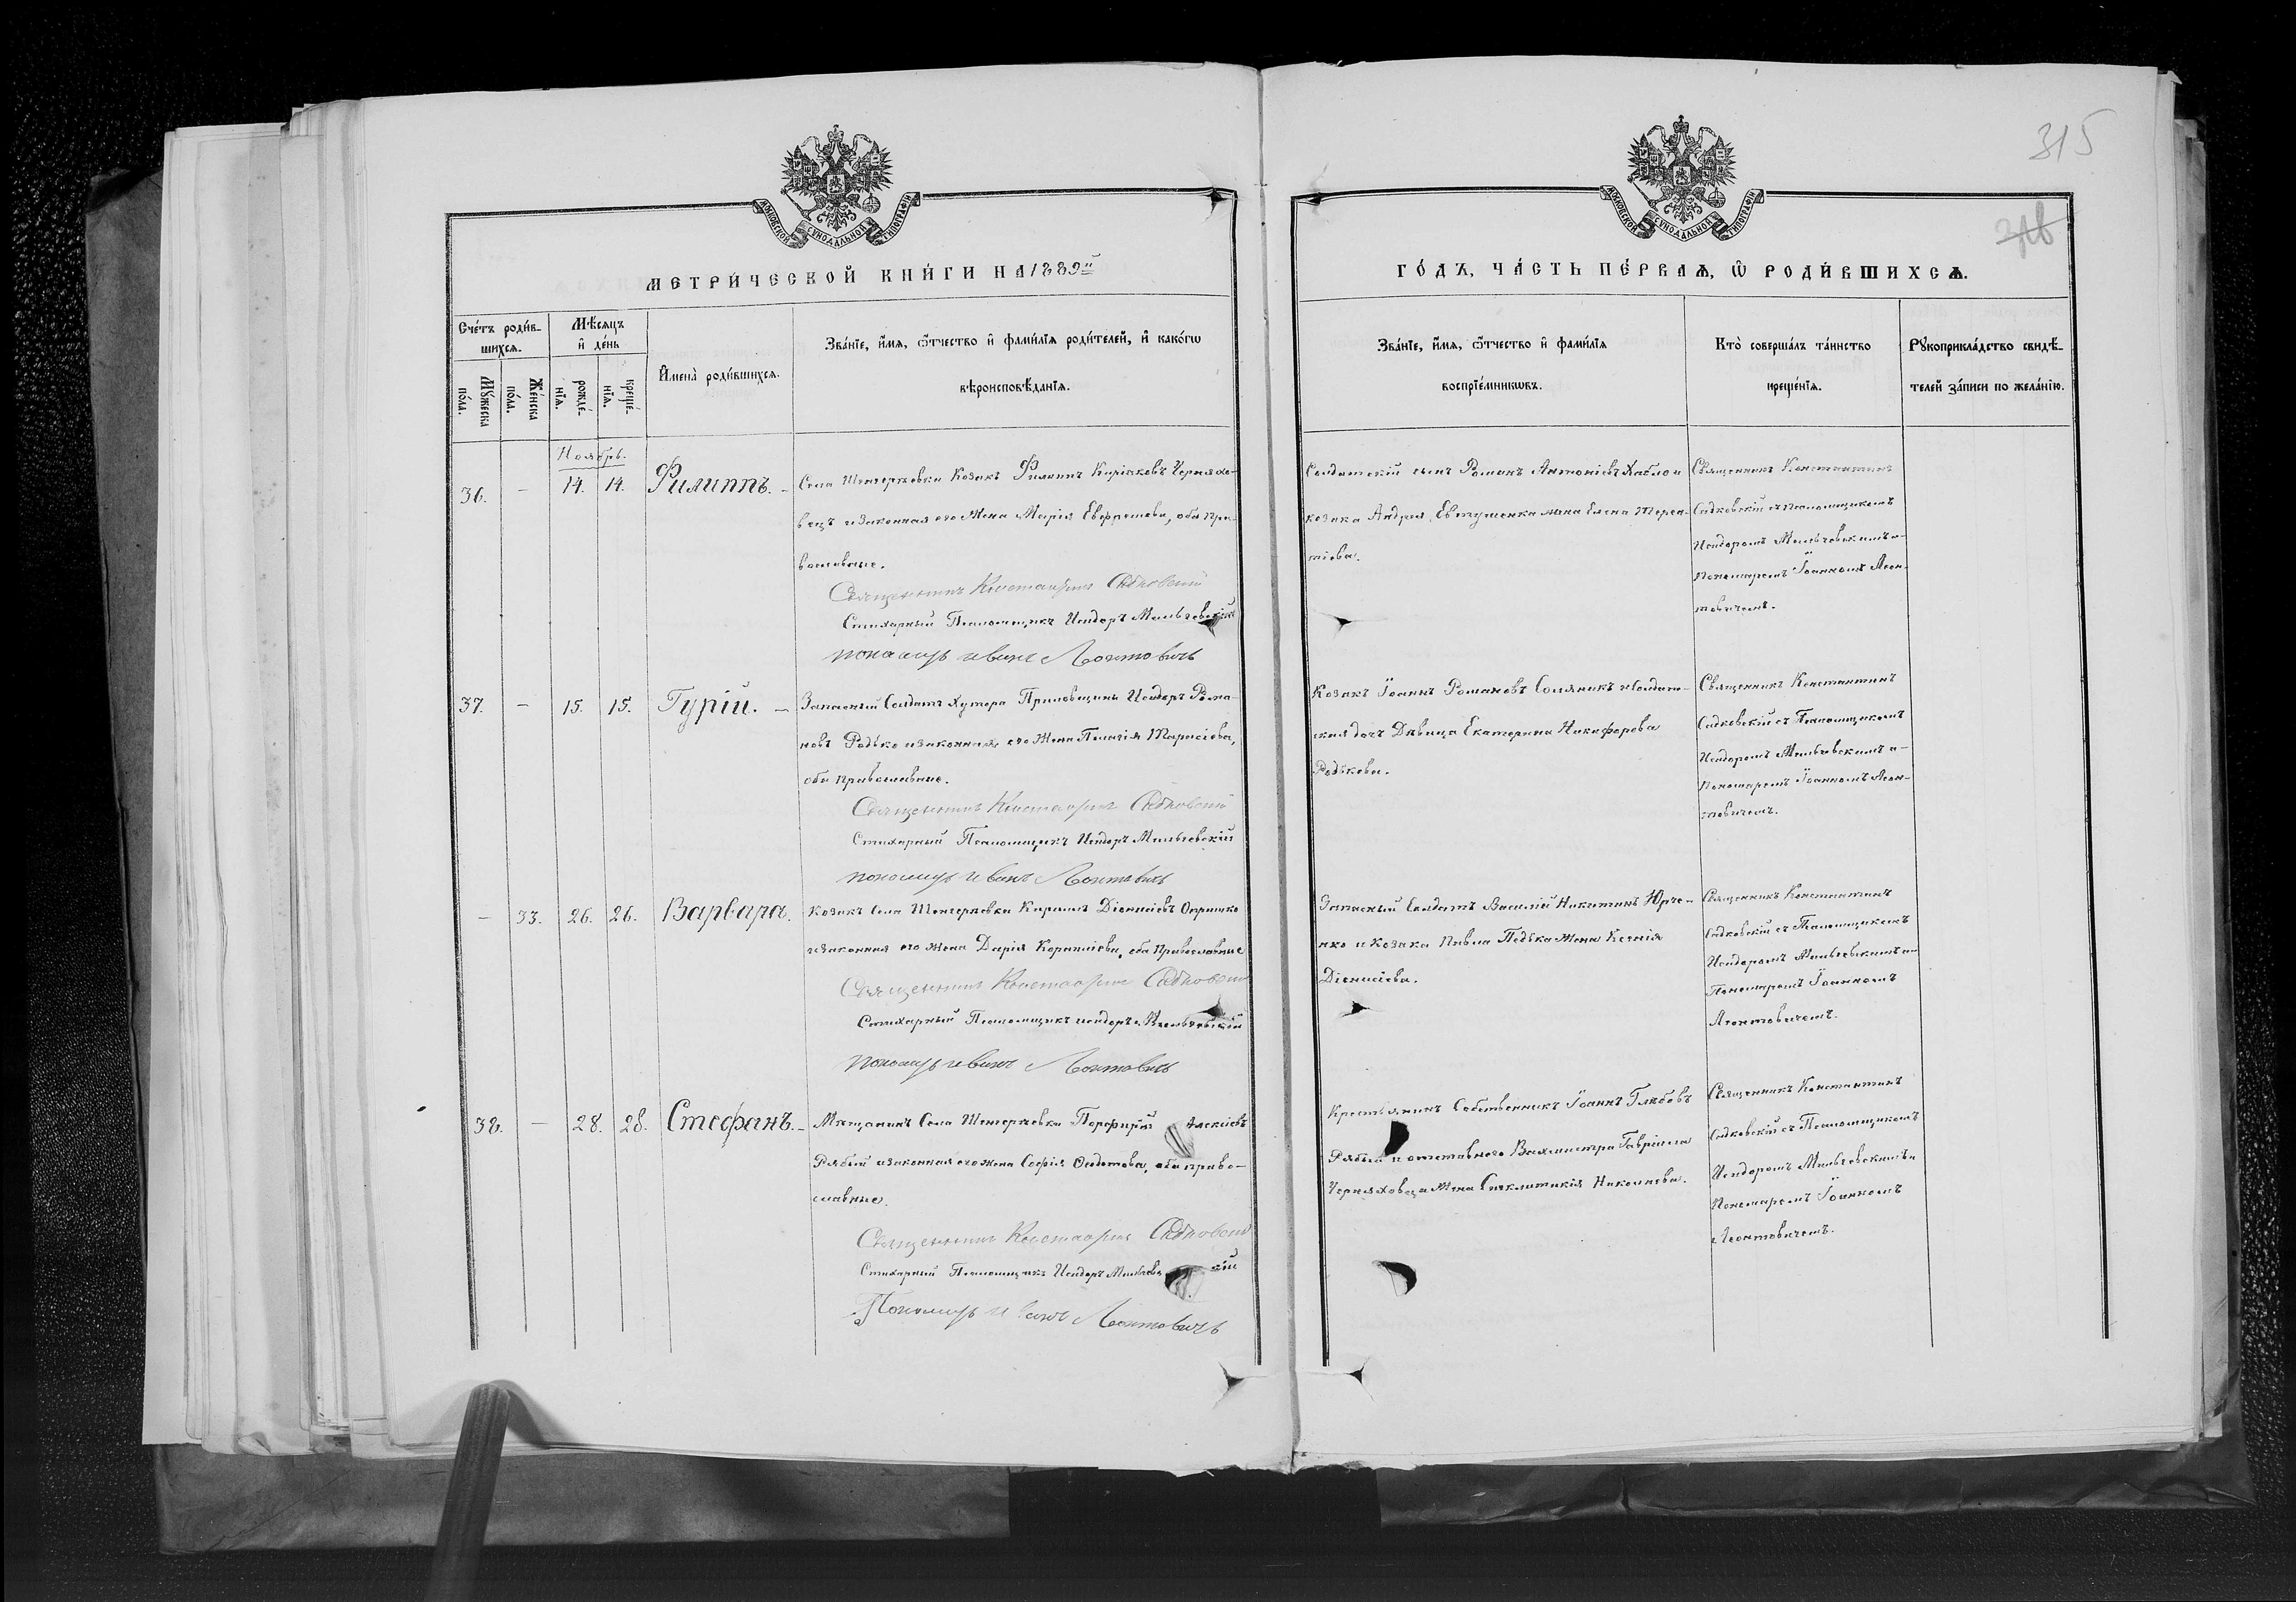 315
МОСКОВСКОЙ СѴНОДАЛЬНОЙ ТИПОГРАФІИ
МОСКОВСКОЙ СѴНОДАЛЬНОЙ ТИПОГРАФІИ
МЕТРИ́ЧЕСКОЙ КНИ́ГИ НА 1889й
ГО́ДЪ, ЧА́СТЬ ПЕ́РВАѦ, Ѡ РОДИ́ВШИХСѦ.
Сче́тъ роди́в-
шихсѧ.
Мꙋ́жеска по́ла.
Же́нска по́ла.
Мѣ́сѧцъ и де́нь
рожде́-нїѧ.
креще́-нїѧ.
И҆мена̀ роди́вшихсѧ.
Зва́нїе, и҆́мѧ, ѿтчество и҆ фами́лїѧ роди́телей, и҆ како́гѡ
вѣроисповѣ́данїѧ.
Зва́нїе, и҆́мѧ, ѿтчество и҆ фами́лїѧ
воспрїе́мникѡвъ.
Кто̀ соверша́лъ та́инство
креще́нїѧ.
Рꙋкоприкла́дство свидѣ́-
телей за́писи по жела́нїю.
Ноябрь.
36. - 14. 14. Филиппъ.
Села Козакъ Филиппъ Киріаковъ Черняхо-
вецъ и законная его жена Марія оба пра-
вославные.
Священникъ Константинъ Садковскій
Стихарный Псаломщикъ Исидоръ
пономарь Иванъ Леонтовичъ
Солдатскій сынъ Романъ Антоніевъ и
козака Андрея Евтушенка жена Елена Терен-
тіева.
Священникъ Константинъ
Садковскій съ Псаломщикомъ
Исидоромъ и
Пономаремъ Іоанномъ Леон-
товичемъ.
37. - 15. 15. Гурій.
Запасный Солдатъ Хутора Исидоръ Рома-
новъ Родько и законная его жена Пелагія Тарасіева,
оба православные.
Священникъ Константинъ Садковскій
Стихарный Псаломщикъ Исидоръ
пономарь Иванъ Леонтовичъ
Козакъ Іоаннъ Романовъ Соляникъ и Солдат-
ская дочь Дѣвица Екатерина Никифорова
Родькова.
Священникъ Константинъ
Садковскій съ Псаломщикомъ
Исидоромъ и
Пономаремъ Іоанномъ Леон-
товичемъ.
- 33. 26. 26. Варвара.
Козакъ Села Кириллъ Діонисіевъ Опришко
и законная его жена Дарія Корниліева, оба Православные
Священникъ Константинъ Садковскій
Стихарный Псаломщикъ Исидоръ
пономарь Иванъ Леонтовичъ
Запасный Солдатъ Василій Никитинъ Юрче-
нко и Козака Павла жена Ксенія
Діонисіева.
Священникъ Константинъ
Садковскій съ Псаломщикомъ
Исидоромъ и
Пономаремъ Іоанномъ
Леонтовичемъ.
38. - 28. 28. Стефанъ.
Мѣщанинъ Села Порфирій Алексіевъ
Рябый и законная его жена Софія Федотова, оба право-
славные.
Священникъ Константинъ Садковскій
Стихарный Псаломщикъ Исидоръ
Пономарь Иванъ Леонтовичъ
Крестьянинъ Собственникъ Іоаннъ Глѣбовъ
Рябый и отставного Вахмистра Гавріила
Черняховца жена Синклитикія Николаева.
Священникъ Константинъ
Садковскій съ Псаломщикомъ
Исидоромъ и
Пономаремъ Іоанномъ
Леонтовичемъ.